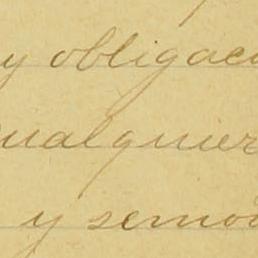 y obligac
ualquier
y semo